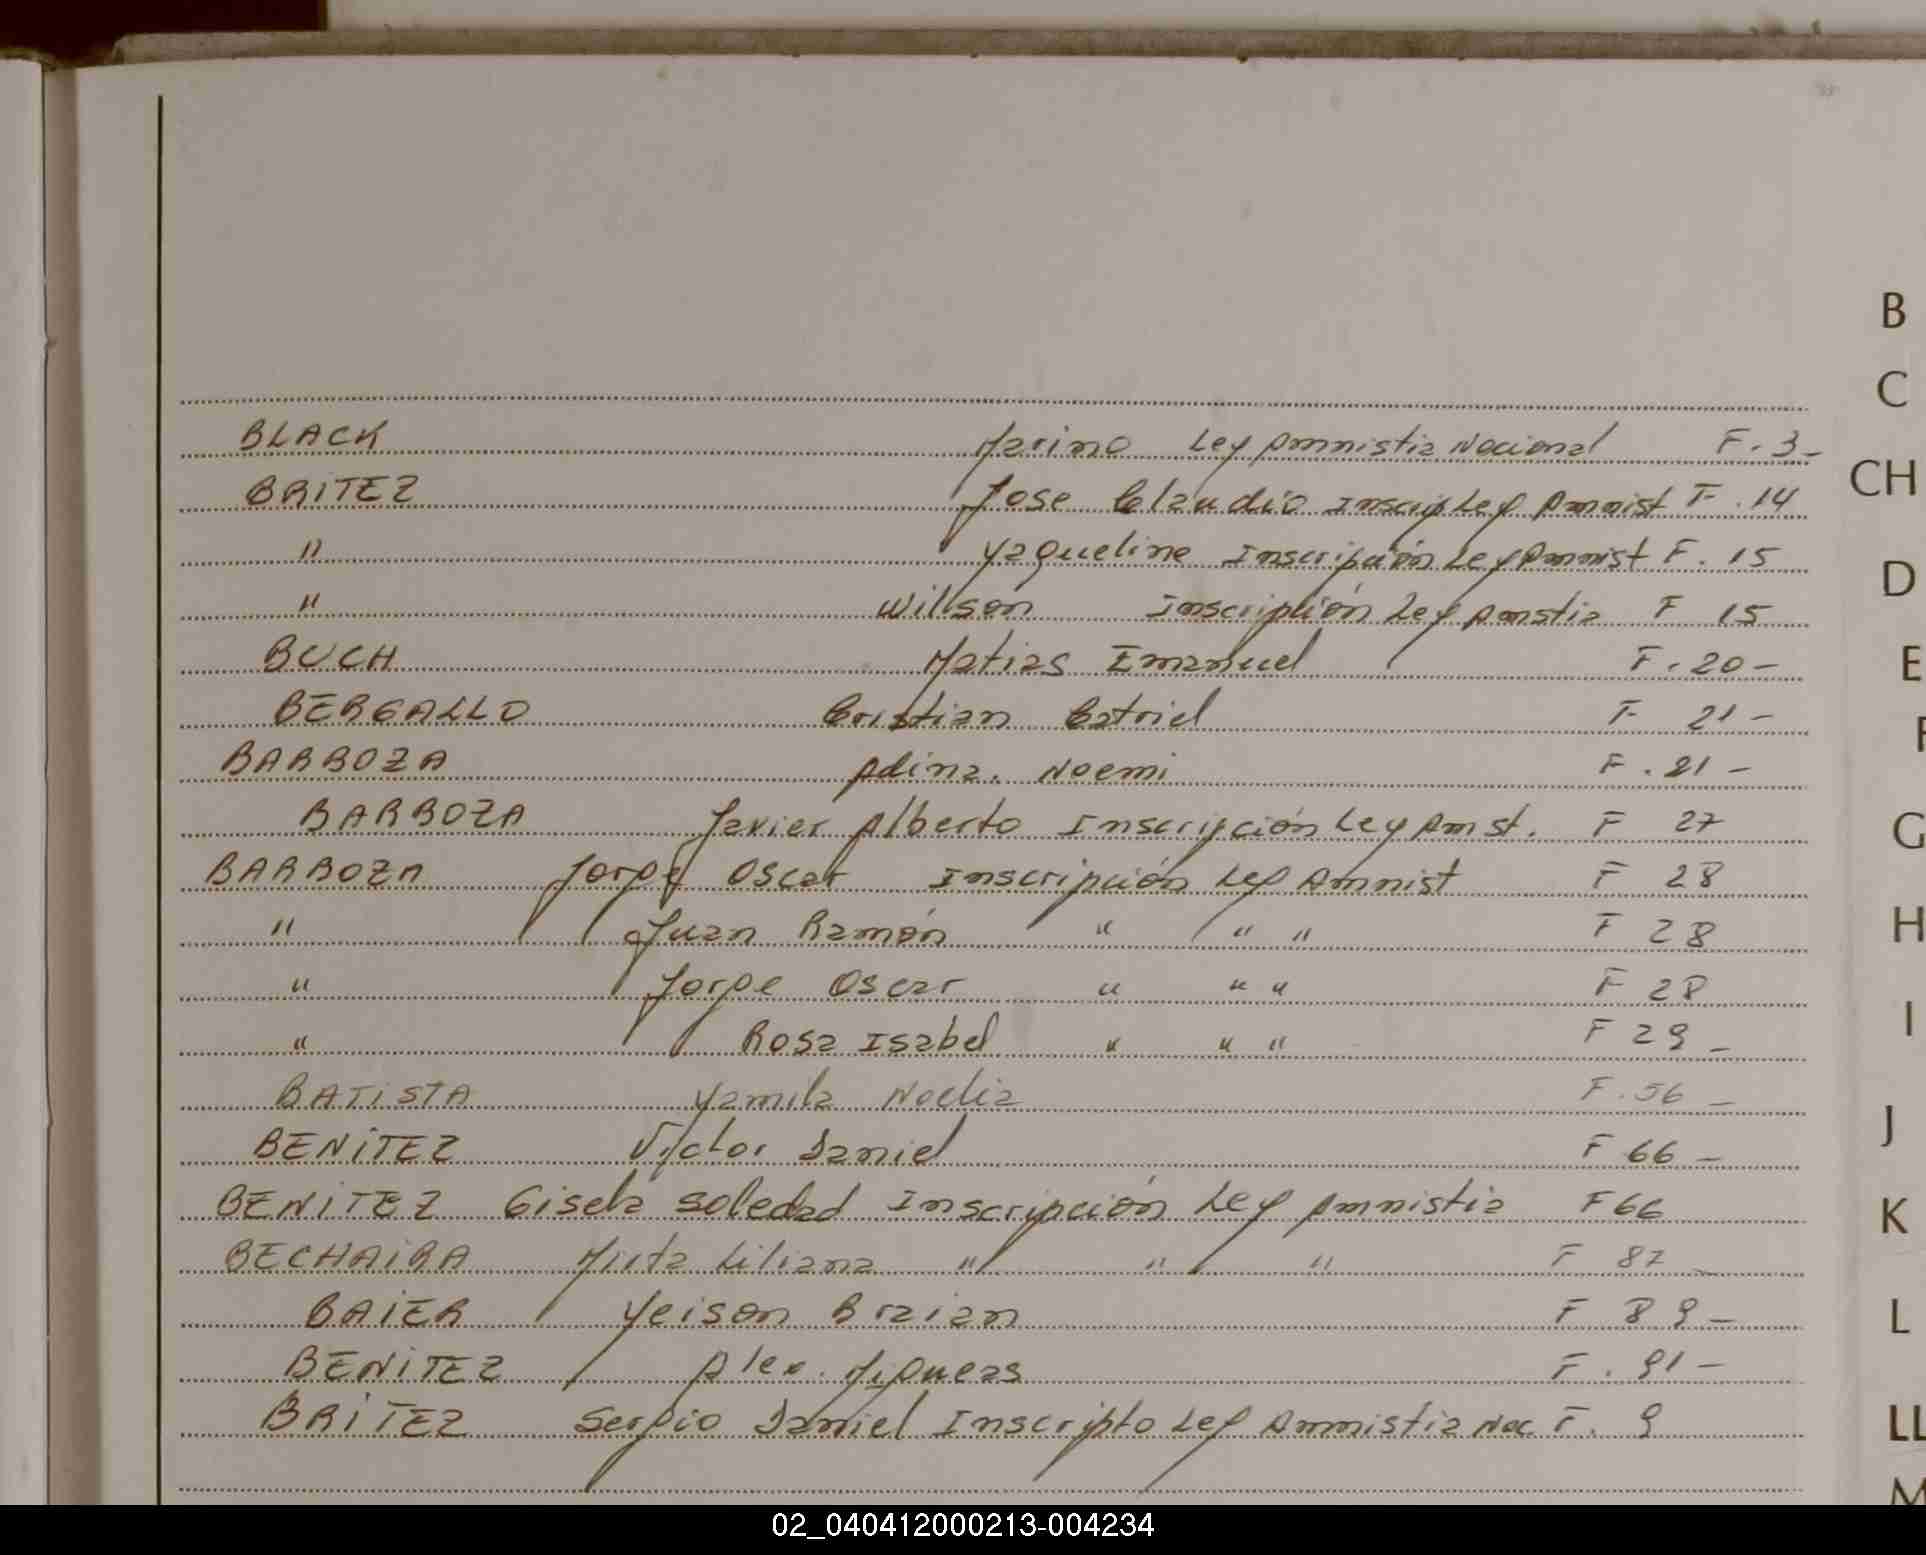 BLACK Marino Ley Amnistia Nacional F. 3-
BRITEZ Jose Claudio Inscrip Ley Amnist F. 14
" Yaqueline Inscripción Ley Amnist F. 15
" Wilson Inscripción Ley Amstia F 15
BUCH Matias Emanuel F. 20-
BERGALLO Cristian Catriel F 21-
BARBOZA Adina. Noemi F. 21-
BARBOZA Javier Alberto Inscripción Ley Amst. F 27
BARBOZA Jorge Oscar Inscripción Ley Amnist F 28
" Juan Ramón " " " F 28
" Jorge Oscar " " " F 28
" Rosa Isabel " " " F 29-
BATISTA Yamila Nadia F. 56-
BENITEZ Victor Daniel F 66-
BENITEZ Gisela Soledad Inscripción Ley Amnistia F 66
BECHAIRA Mirta Liliana " " " F 87-
BAIER Yeison Braian F 89-
BENITEZ Alex. F. 91-
BRITEZ Sergio Daniel Inscripto Ley Ammistia Nac F. 9
B
C
CH
D
E
F
G
H
I
J
K
L
LL
M
02_040412000213-004234